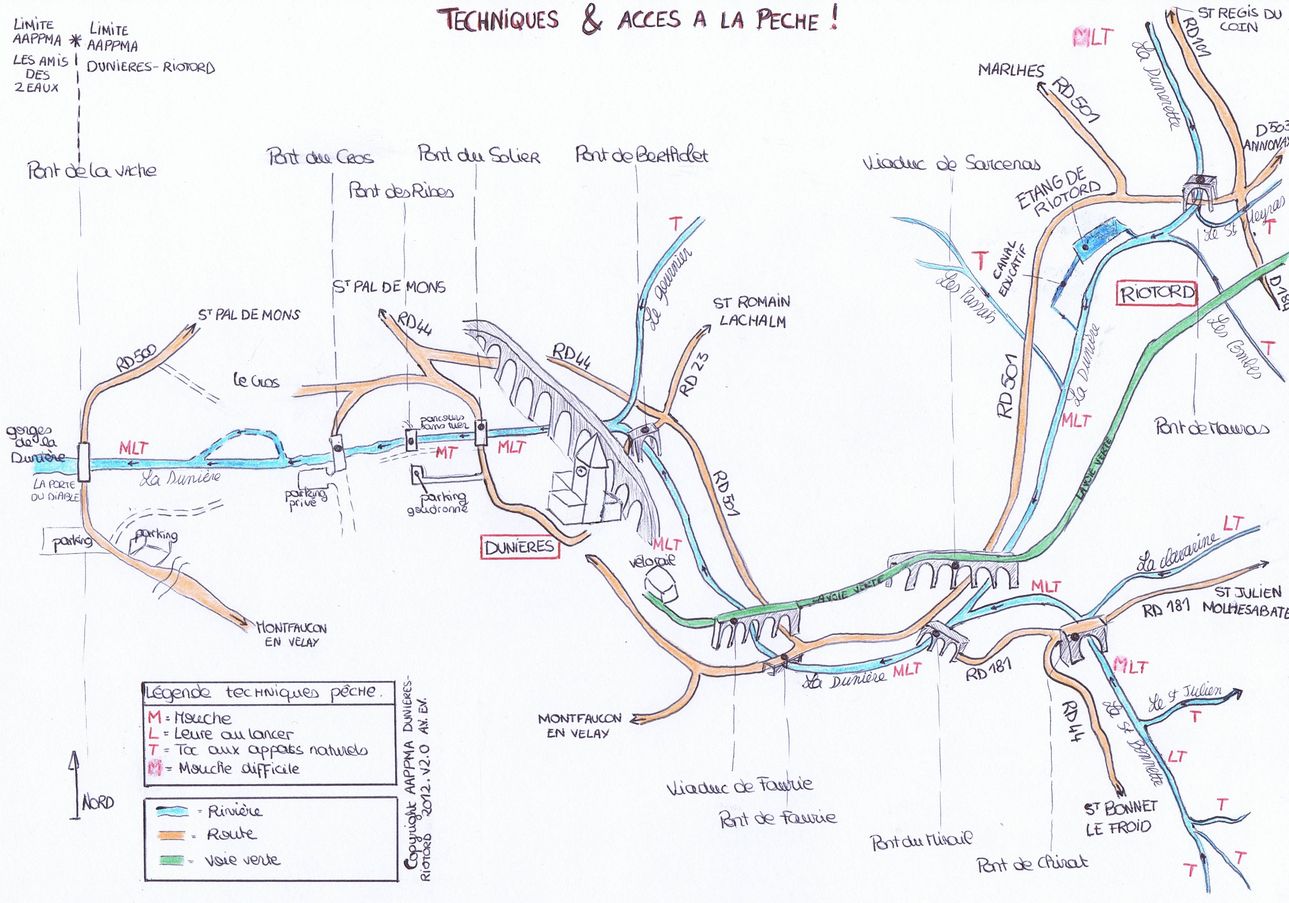 TECHNIQUES & ACCES A LA PECHE !
LIMITE
AAPPMA
LES AMIS
DES
2 EAUX
*
LIMITE
AAPPMA
DUNIERES-RIOTORD
Pont de la vache
Pont du Cros
Pont des Ribes
Pont du Solier
Pont de Berthelet
Viaduc de Sarcenas
MLT
La Dunerette
ST REGIS DU
COIN
RD 101
MARLHES
RD 501
D 503
ANNONAY
ETANG DE
RIOTORD
CANAL
EDUCATIF
Le St Meyras
T
RIOTORD
D 181
Les Combes
T
Pont de Mauras
T
Les Passais
RD 501
La Dunière
MLT
LA VOIE VERTE
T
Le Gournier
ST ROMAIN
LACHALM
RD 23
RD 44
RD 501
ST PAL DE MONS
RD 500
ST PAL DE MONS
RD 44
le Cros
gorges
de la
Dunière
LA PORTE
DU DIABLE
MLT
La Dunière
parking
privé
parcours
sans tuer
MT
MLT
parking
goudronné
parking
parking
MONTFAUCON
EN VELAY
DUNIÈRES
MLT
vélorail
LA VOIE VERTE
MLT
La clavarine
LT
RD 181
ST JULIEN
MOLHESABATE
La Dunière
MLT
RD 181
MLT
Le St Julien
T
La St Bonnette
LT
RD 44
ST BONNET
LE FROID
T
T
T
MONTFAUCON
EN VELAY
Viaduc de Faurie
Pont de Faurie
Pont du Mirail
Pont de Chirat
NORD
Légende techniques pêche.
M = Mouche
L = Leure au lancer
T = Toc aux appats naturels
M = Mouche difficile
= Rivière
= Route
= Voie verte
Copyright AAPPMA DUNIERES-
RIOTORD 2012. V2.0 AX. EX.